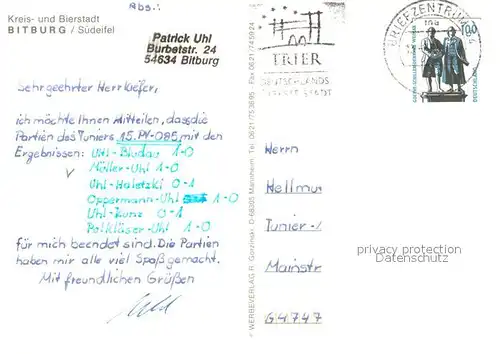 Kreis- und Bierstadt
BITBURG / Südeifel
Abs.:
Patrick Uhl
Burbetstr. 24
54634 Bitburg
Sehr geehrter Herr Kiefer,
ich möchte Ihnen Mitteilen, dass die
Partien des Tuniers 15.PY-085 mit den
Ergebnissen: Uhl-Bludau 1-0
Müller-Uhl 1-0
Uhl-Haletzki 0-1
Oppermann-Uhl 1-0
Uhl-Kunz 0-1
Polkläser-Uhl 1-0
für mich beendet sind. Die Partien
haben mir alle viel Spaß gemacht.
Mit freundlichen Grüßen
WERBEVERLAG R. Gorzinski D-68305 Mannheim
TRIER
DEUTSCHLANDS
BRIEFZENTRUM
100
Herrn
Hellmu
Tunier-
Mainstr
64747
privacy protection
Datenschutz